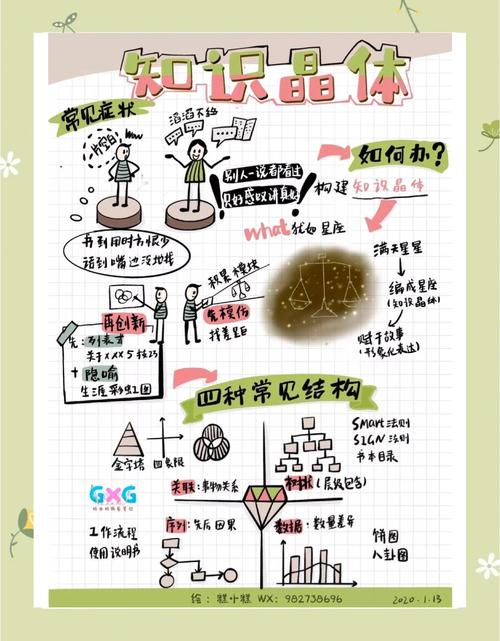 知识晶体
常见症状
一片空白
滔滔不绝
别人一说都看过
只好感叹讲真好
书到用时方恨少
话到嘴边没地找
如何办？
构建知识晶体
what 犹如星座
满天星星
编成星座
(知识晶体)
赋于故事
(形象化表达)
积累模块
先模仿
找差距
再创新
先：列表才
关于XXX5技巧
+ 隐喻
生涯彩虹图
四种常见结构
金字塔
四象限
关联：事物关系
树状(层级包含)
SMart法则
SIGN法则
书本目录
GXG
序列：先后因果
工作流程
使用说明书
数据：数量差异
饼图
八卦图
绘：糕小糕 WX：982738696
2020.1.13